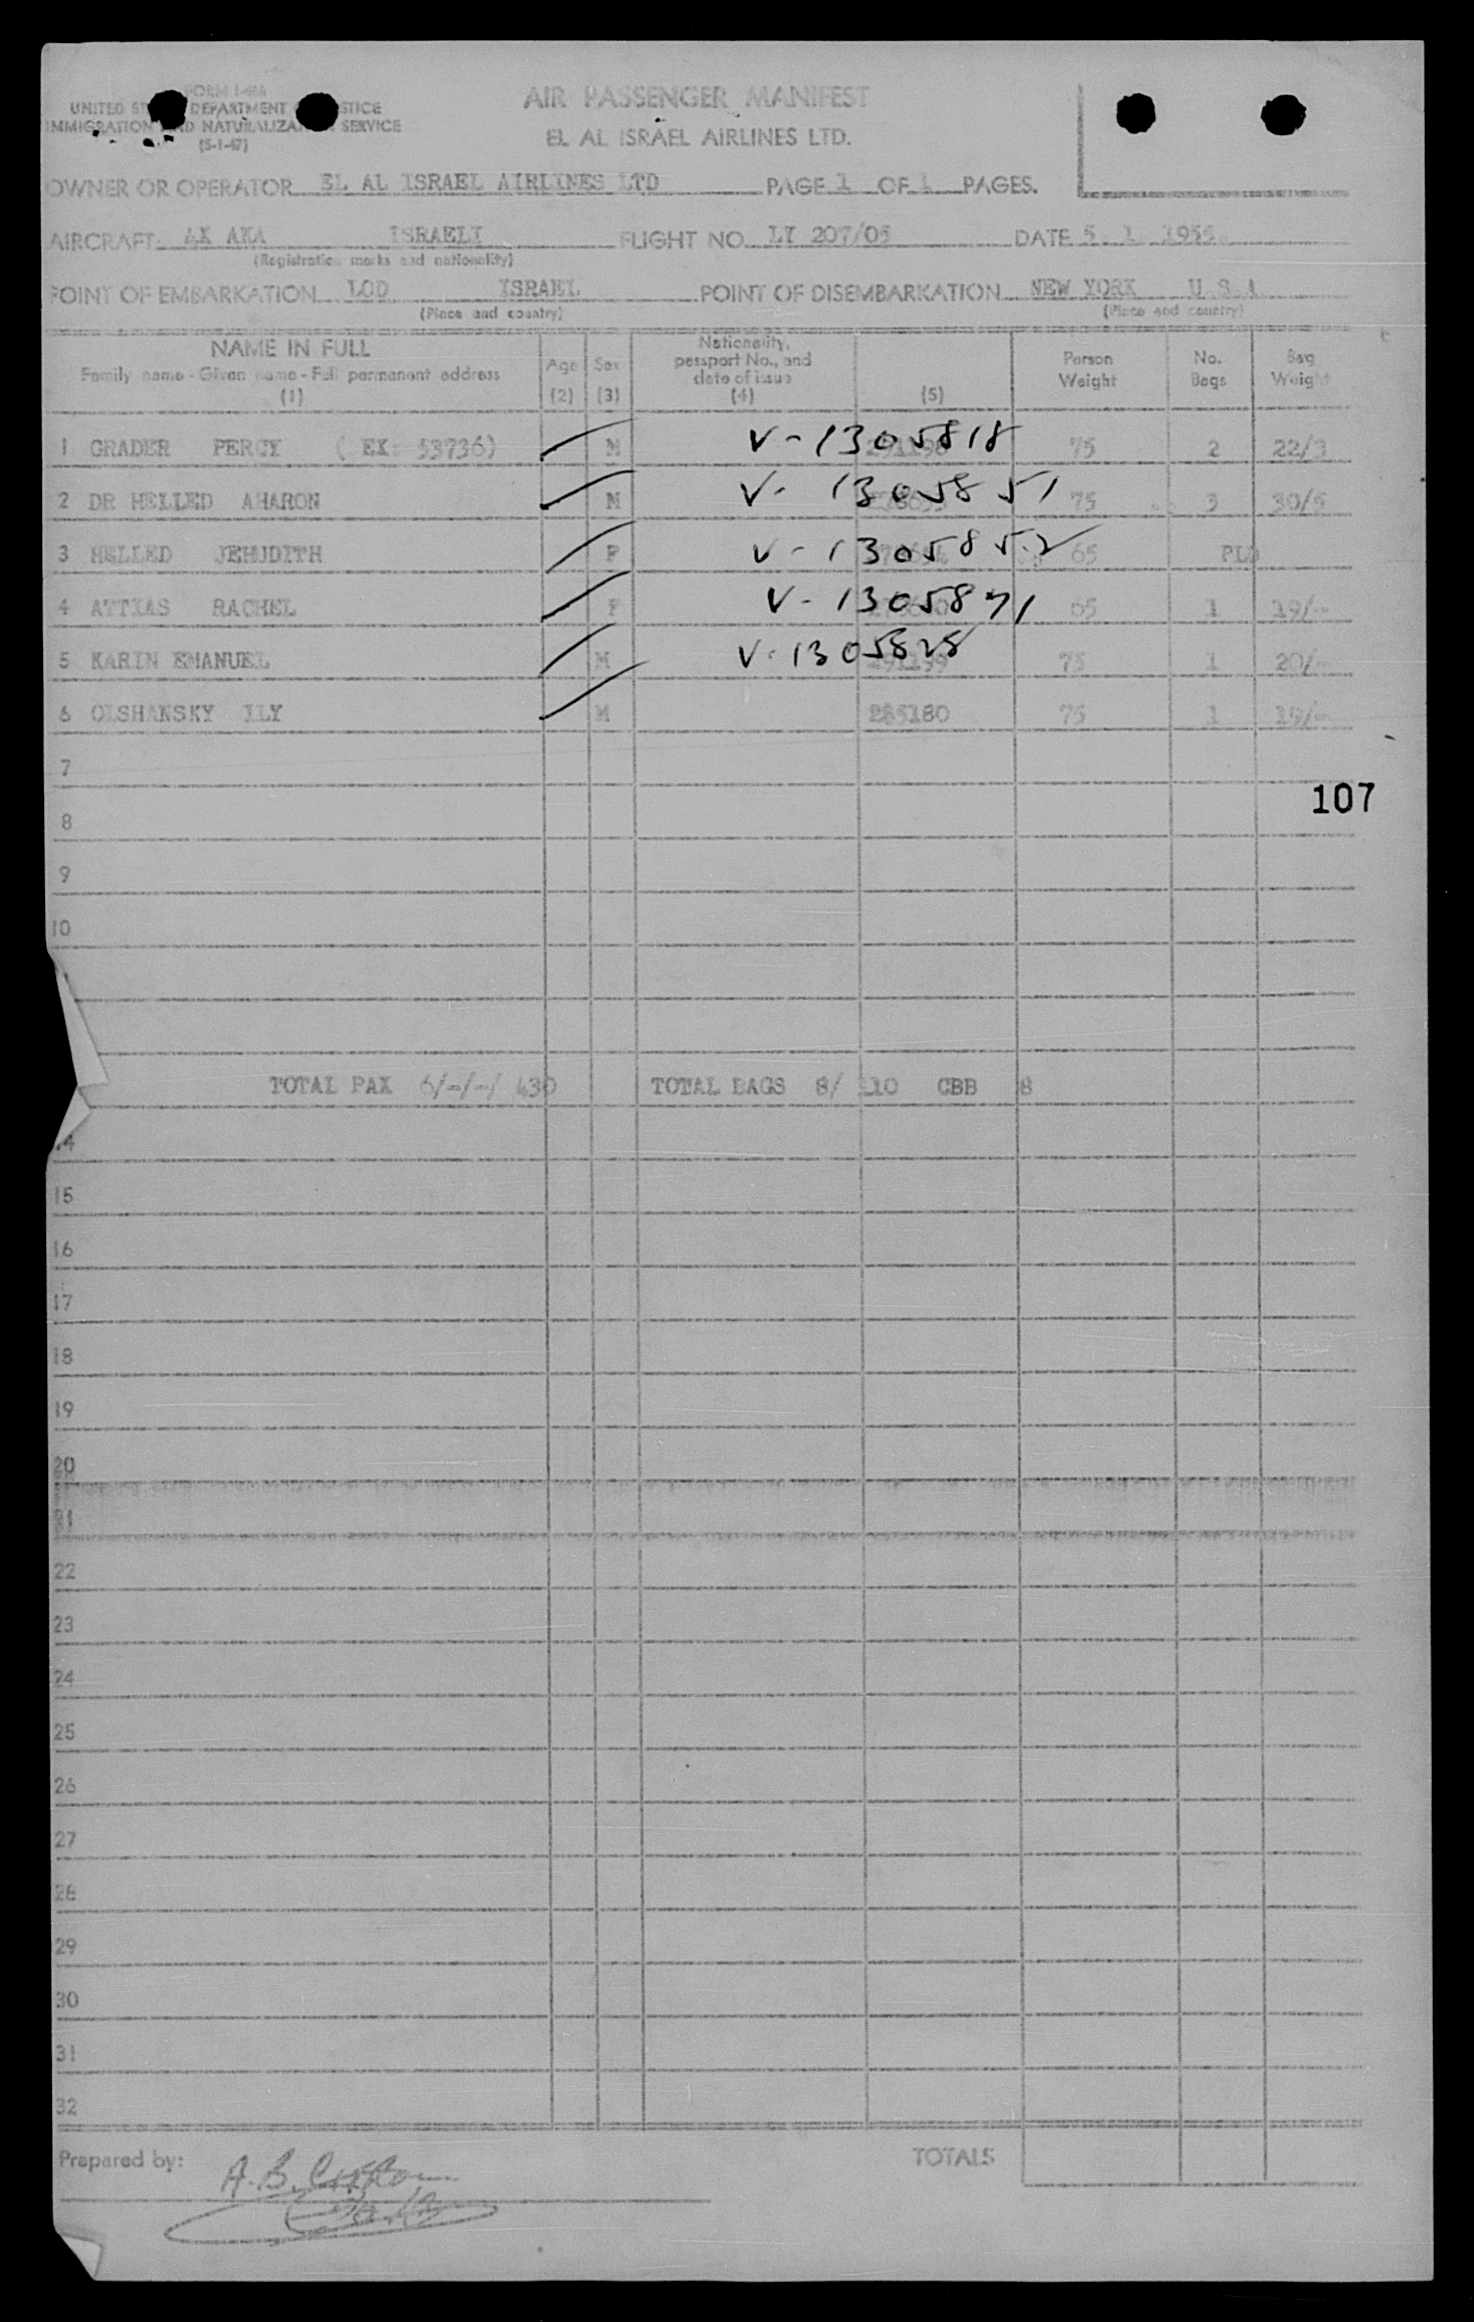 FORM I-
AIR PASSENGER MANIFEST
UNITED DEPARTMENT
IMMIGRATION AND NATURALIZATION SERVICE
(5-1-47)
EL AL ISRAEL AIRLINES LTD.
OWNER OR OPERATOR EL AL ISRAEL AIRLINES LTD PAGE 1 OF 1 PAGES.
AIRCRAFT 4X AKA ISRAELI FLIGHT NO. LY 207/05 DATE 5. 1. 1955.
(Registration marks and nationality)
POINT OF EMBARKATION LOD ISRAEL POINT OF DISEMBARKATION NEW YORK U S A
(Place and country) (Place and country)
NAME IN FULL
Family name - Given name - Full permanent address
(1)
Age
(2)
Sex
(3)
Nationality,
passport No., and
date of issue
(4)
(5)
Person
Weight
No.
Bags
Bag
Weight
1 GRADER PERCY ( EX: 53736) M V-1305818 75 2 22/3
2 DR HELLED AHARON M V-1305851 75 3 30/5
3 HELLED JEHUDITH F V-1305852 65 PLD
4 ATTIAS RACHEL F V-1305871 65 1 19/-
5 KARIN EMANUEL M V-1305828 75 1 20/-
6 OLSHANSKY ILY M 285180 75 1 19/-
7
107
8
9
10
TOTAL PAX 6/-/-/ 430 TOTAL BAGS 8/ 110 CBB 8
14
15
16
17
18
19
20
21
22
23
24
25
26
27
28
29
30
31
32
Prepared by: A. B. TOTALS